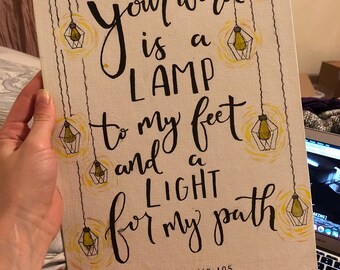 Your
is a
LAMP
to my feet
and a
LIGHT
for my path